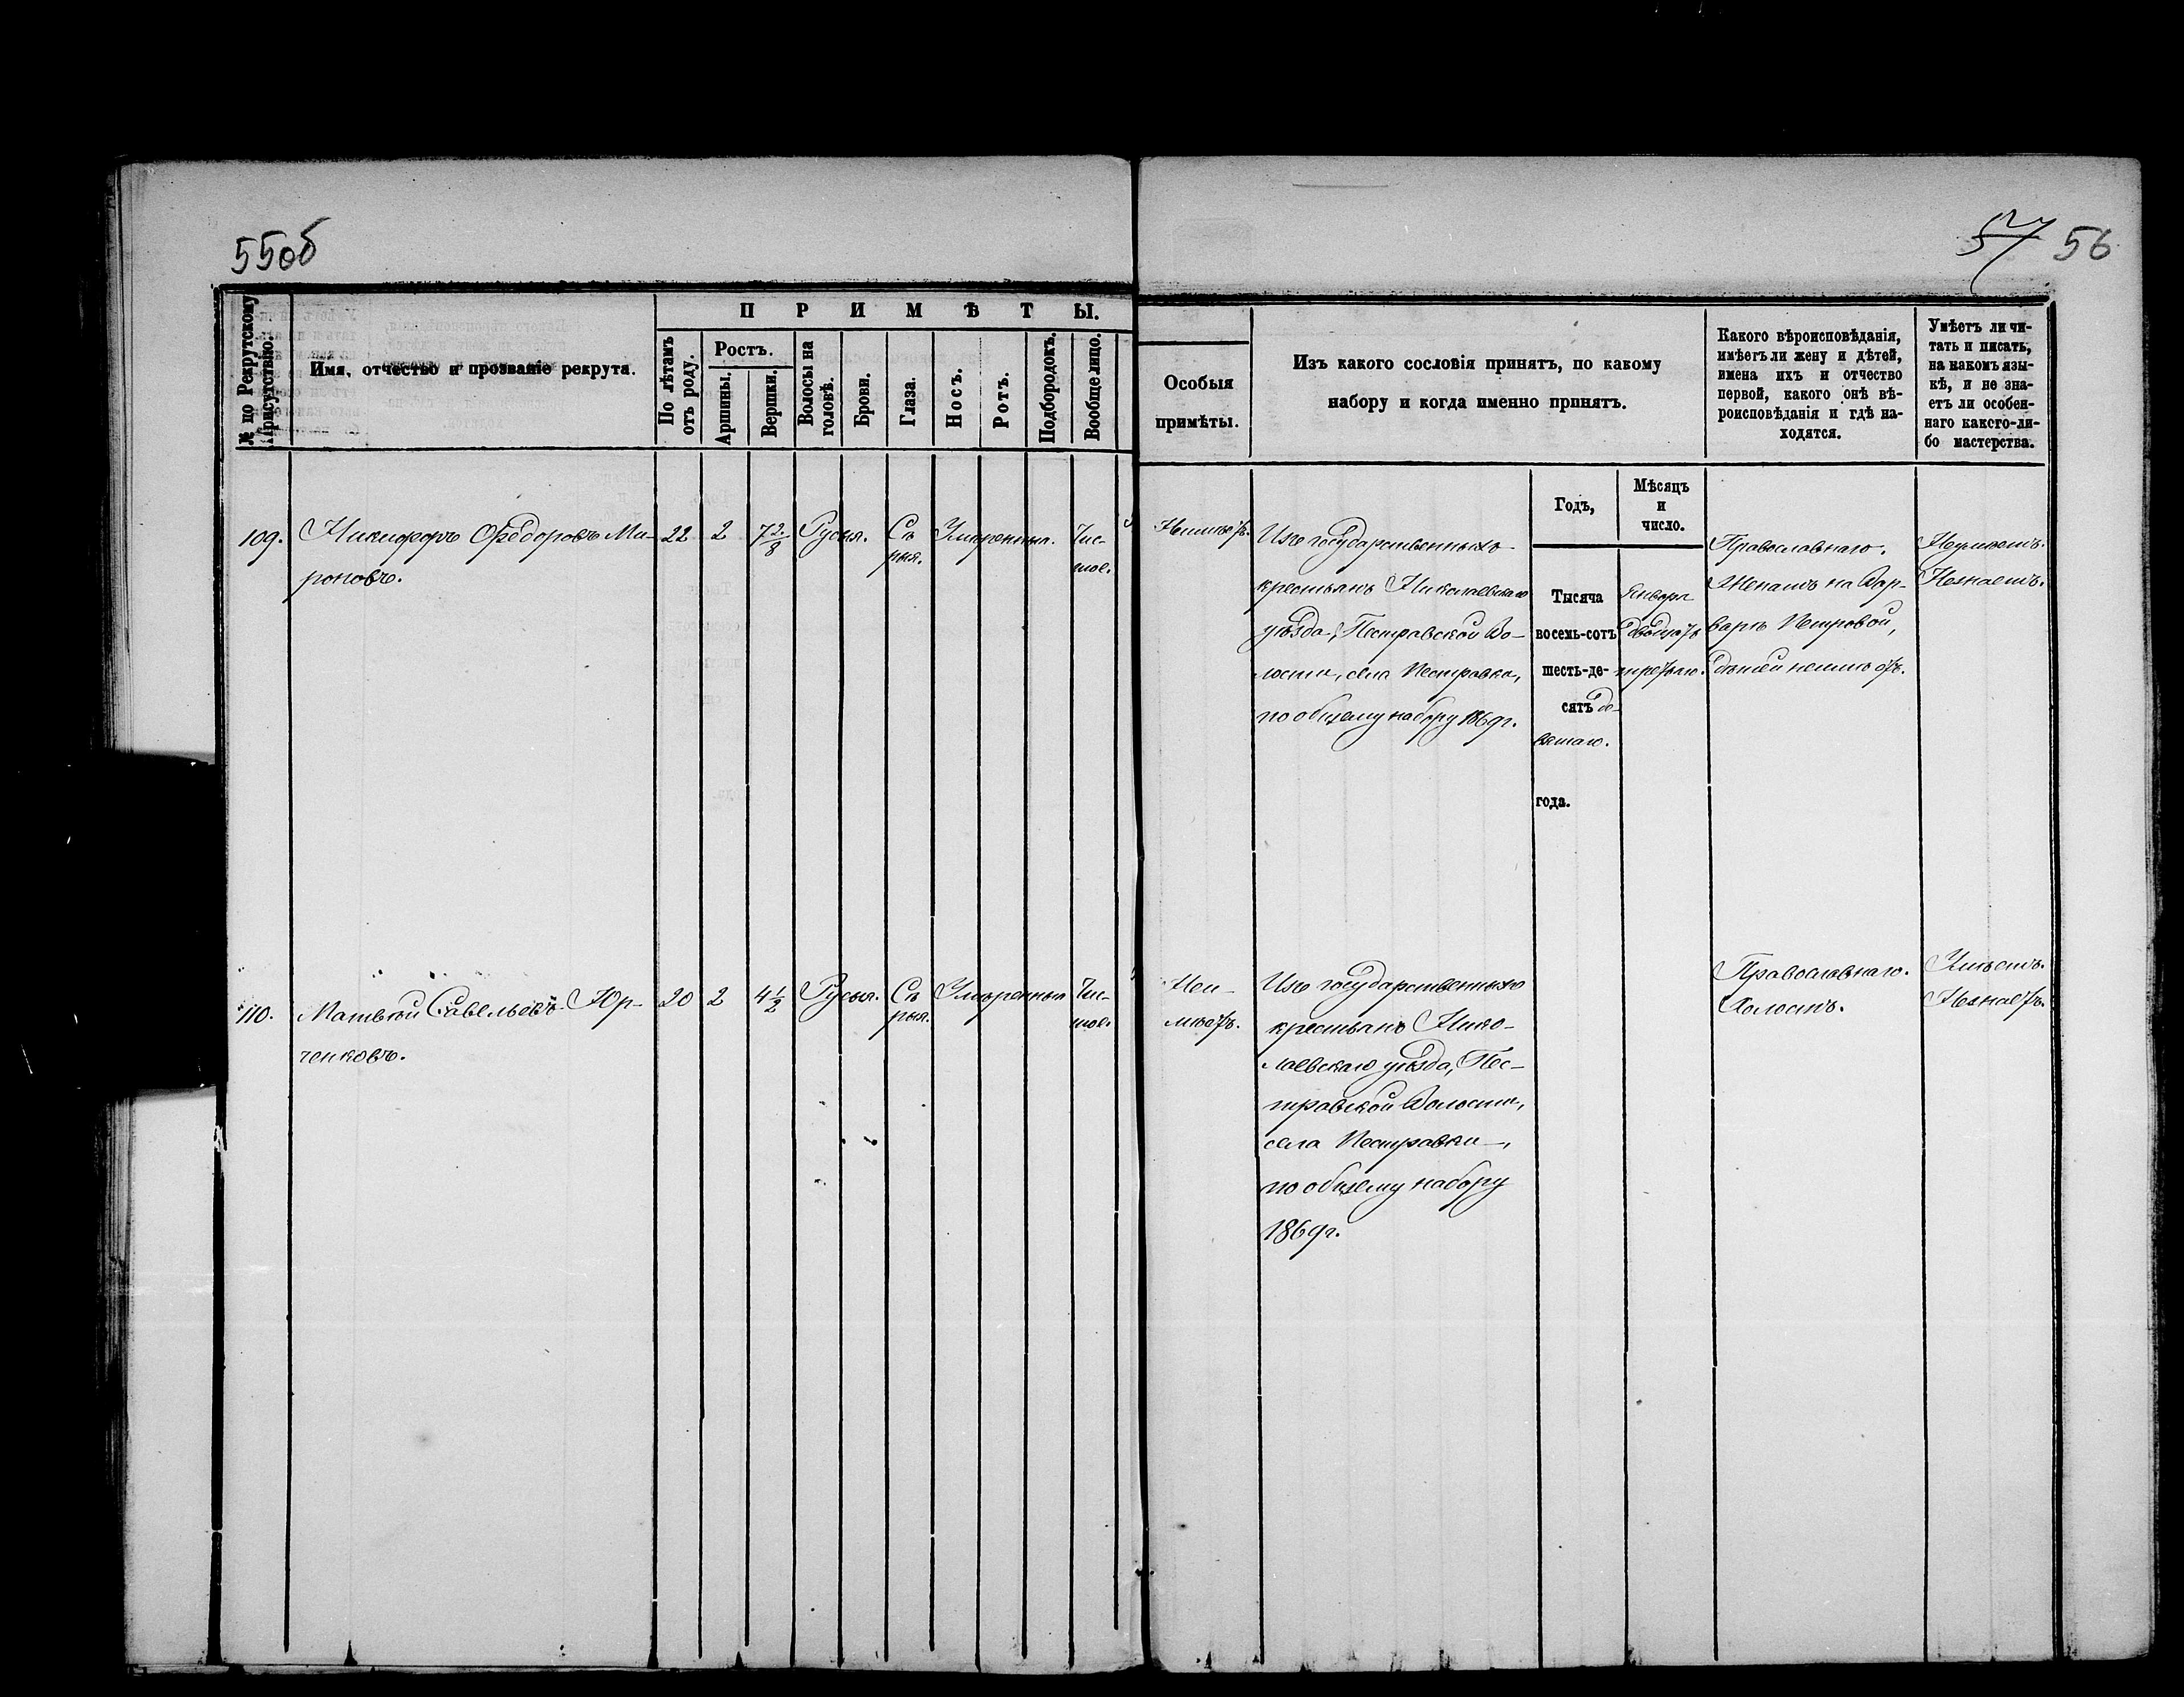 55об
57 56
№ по Рекрутскому
Присутствію.
Имя, отчество и прозваніе рекрута.
ПРИМѢТЫ.
По лѣтамъ
отъ роду.
Ростъ.
Аршины.
Вершки.
Волосы на
головѣ.
Брови.
Глаза.
Носъ.
Ротъ.
Подбородокъ.
Вообще лицо.
Особыя
примѣты.
Изъ какого сословія принятъ, по какому
набору и когда именно принятъ.
Какого вѣроисповѣданія,
имѣетъ ли жену и дѣтей,
имена ихъ и отчество
первой, какого онѣ вѣ-
роисповѣданія и гдѣ на-
ходятся.
Умѣетъ ли чи-
тать и писать,
на какомъ язы-
кѣ, и не зна-
етъ ли особен-
наго какого-ли-
бо мастерства.
Годъ,
Мѣсяцъ
и
число.
109.
Никифоръ Ѳедоровъ Ми-
роновъ.
22
2
7 2/8
Русыя.
Сѣ
рыя.
Умѣренныя.
Чис-
тое.
Неимѣетъ.
Изъ государственныхъ
крестьянъ Николаевскаго
уѣзда, Пестравской Во-
лости, села Пестравка,
по общему набору 1869г.
Тысяча
восемь-сотъ
шесть-де-
сятъ де-
вятаго.
года.
Января
двадцать
третьяго.
Православнаго.
Женатъ на Вар-
варѣ Петровой,
дѣтей неимѣетъ.
Неумѣетъ.
Незнаетъ.
110.
Матвѣй Савельевъ Юр-
ченковъ.
20
2
4 1/2
Русыя.
Сѣ
рыя.
Умѣренныя
Чис-
тое.
Неи-
мѣетъ.
Изъ государственныхъ
крестьянъ Нико-
лаевскаго уѣзда, Пес-
травской Волости,
села Пестравки,
по общему набору
1869г.
Православнаго.
Холостъ.
Умѣетъ.
Незнаетъ.